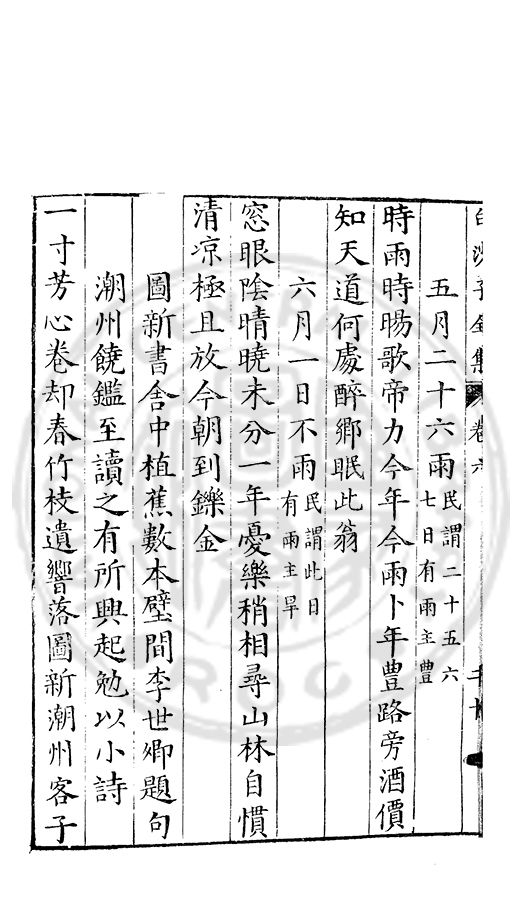 白沙子全集 卷六
五月二十六雨民謂二十五六
七日有雨主豐
時雨時暘歌帝力今年今雨卜年豊路旁酒價
知天道何處醉鄉眠此翁
六月一日不雨民謂此日
有雨主旱
窓眼陰晴曉未分一年憂樂稍相尋山林自慣
清凉極且放今朝到鑠金
圖新書舍中植蕉數本壁間李世卿題句
潮州饒鑑至讀之有所興起勉以小詩
一寸芳心卷却春竹枝遺響落圖新潮州客子